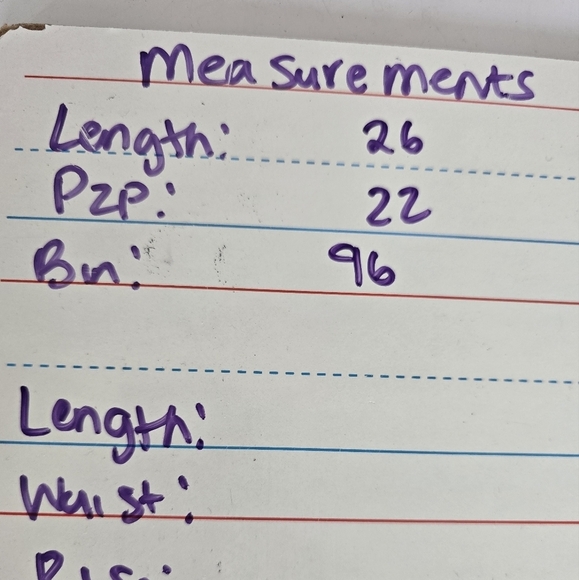 Measurements
Length: 26
P2P: 22
Bn: 96
Length:
Waist: